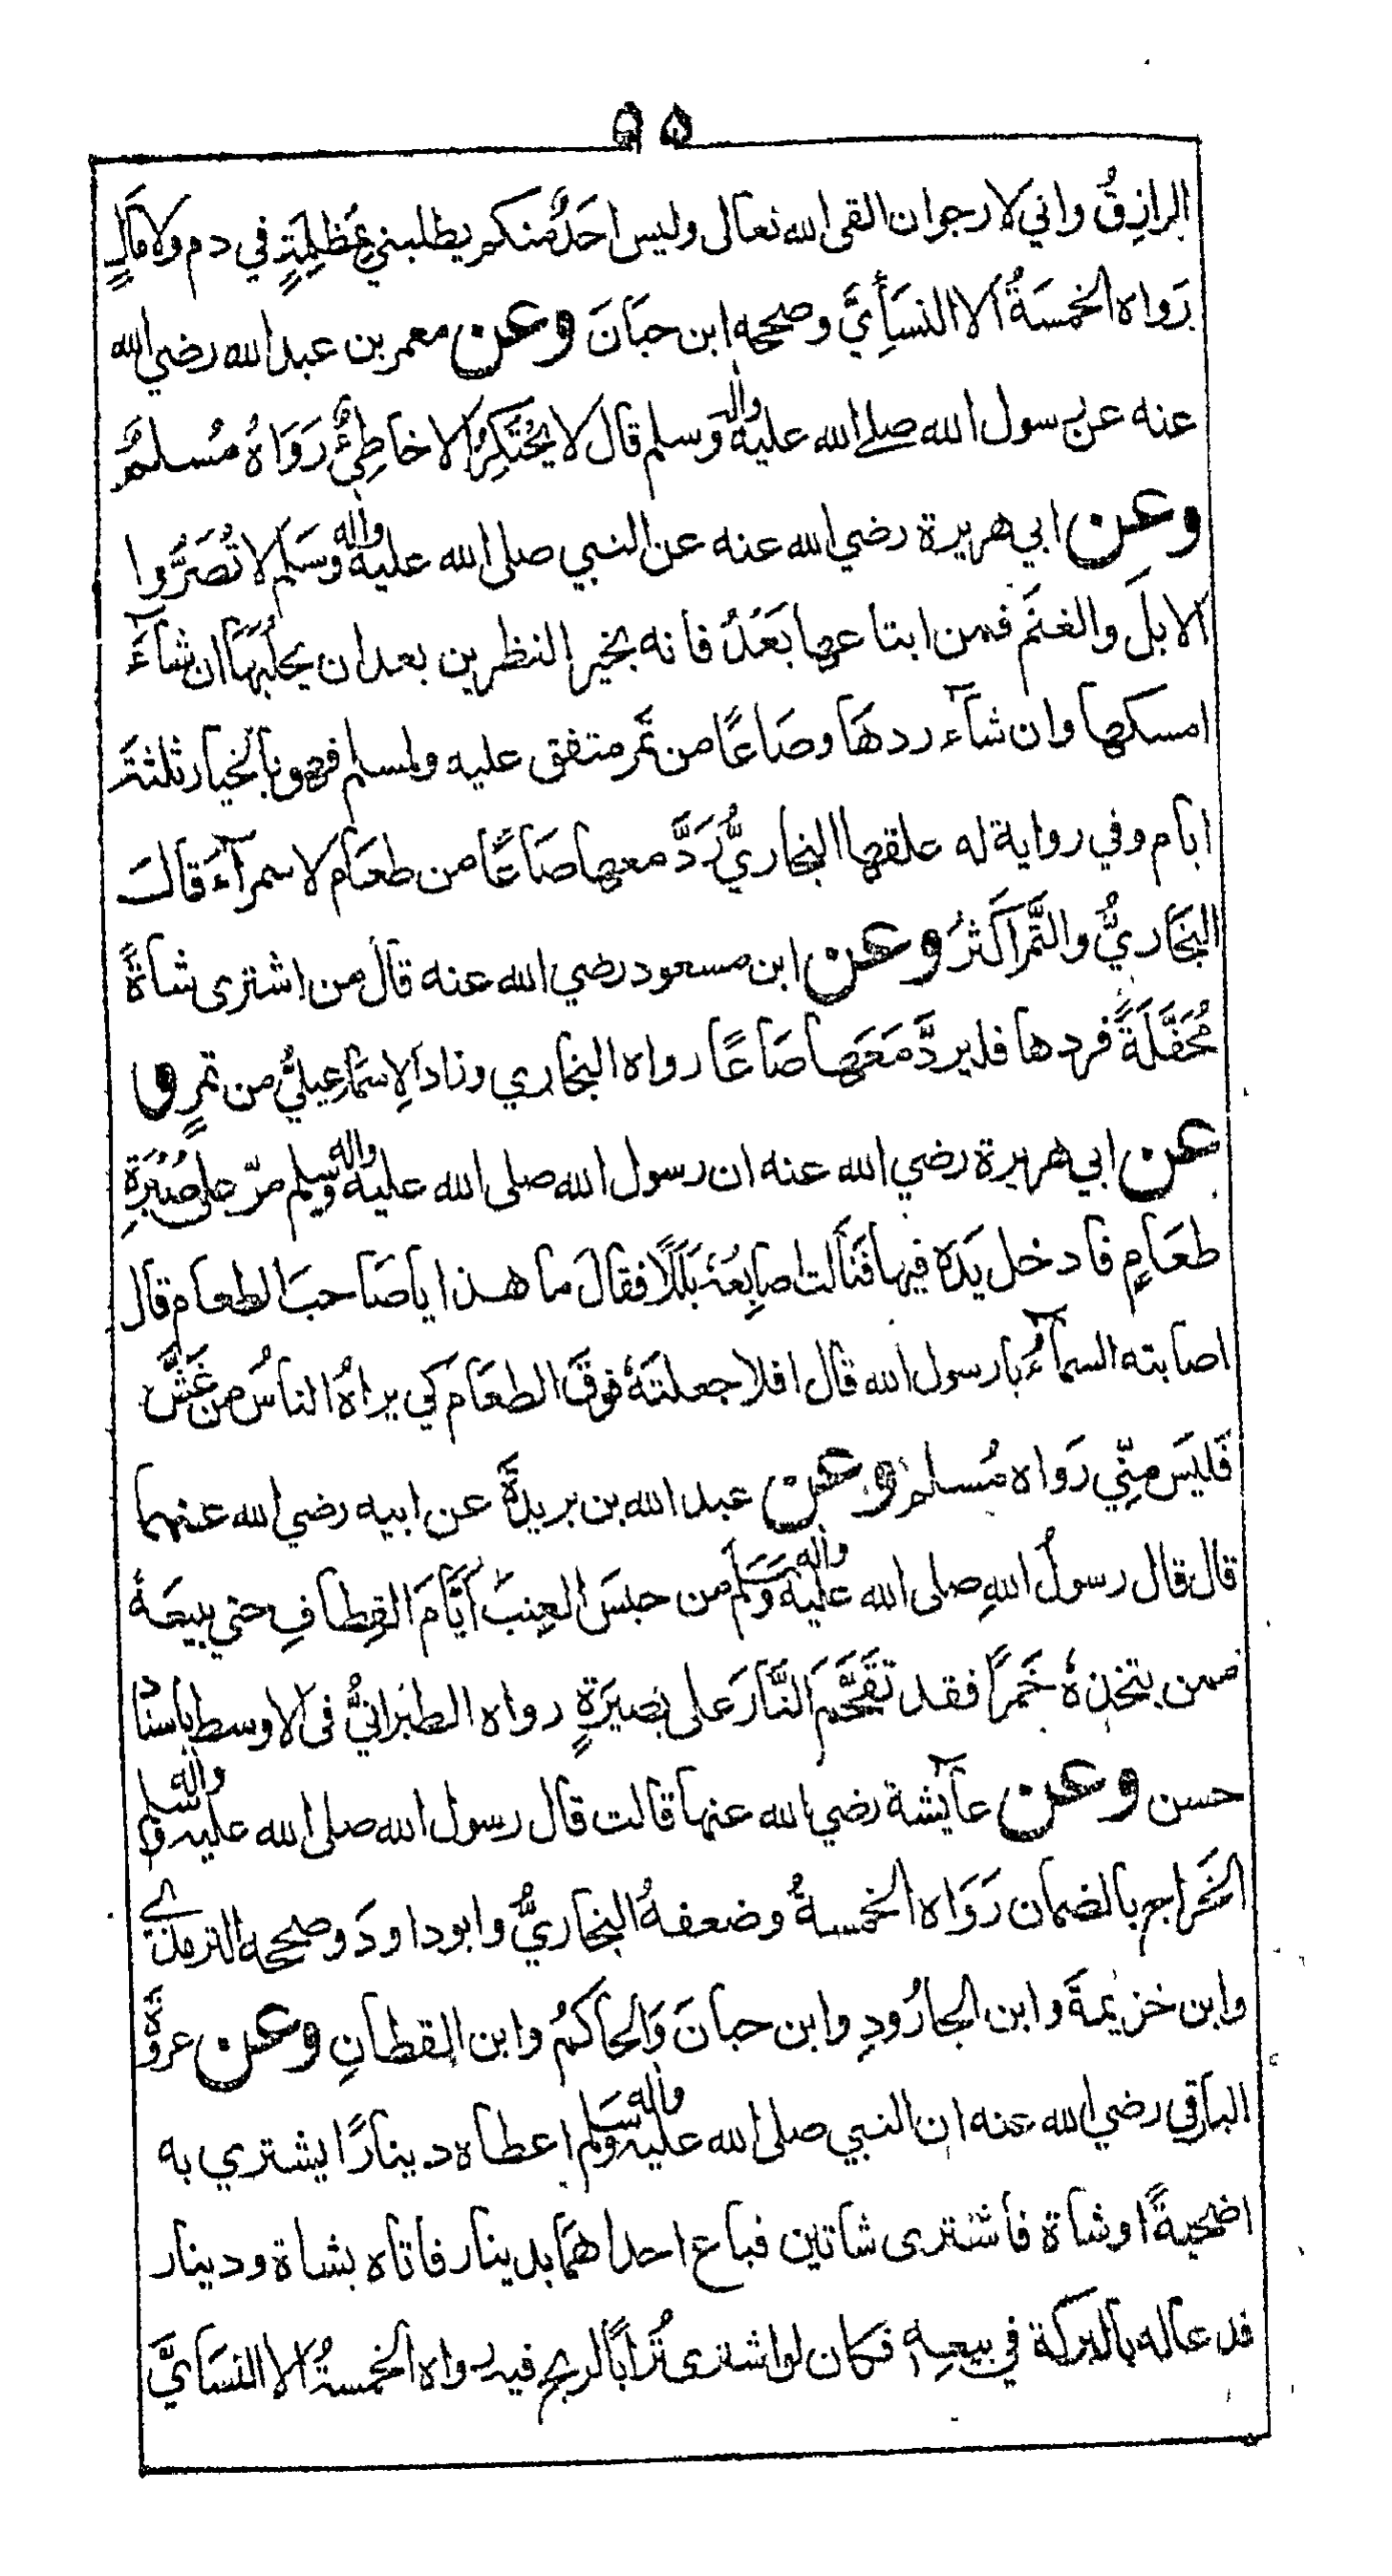 ٩٥
الرازِقُ واني لارجوان القى الله تعالى وليس احَدٌ منكم يطلبني بمَظلِمَةٍ في دم ولا مالٍ
رَواه الخمسَةُ الا النسَأِيَّ وصححه ابن حبَانَ وعن معمر بن عبد الله رضي الله
عنه عن رسول الله صلى الله عليه واله وسلم قال لا يحْتَكِرُ الا خاطِئٌ رَوَاهُ مُسلمٌ
وعن ابي هريرة رضي الله عنه عن النبي صلى الله عليه واله وسَلم لا تُصَرُّوا
الابلَ والغنَم فمن ابتاعها بَعْدُ فانه بخير النظرين بعد ان يحلُبَهَا ان شآءَ
امسكها وان شآء ردهَا وصَاعًا من تَمْر متفق عليه ولمسلم فهو بالخيار ثلثةَ
ايام وفي رواية له علقها البخاريُّ رَدَّ معها صَاعًا من طعَام لا سمرآءَ قالَ
البخَاريُّ والتَّمر اكثرُ وعن ابن مسعود رضي الله عنه قال من اشترى شاةً
مُحَفَّلَةً فردها فليردَّ مَعَها صَاعًا رواه البخاري وزاد الاِسمَاعيليُّ من تمرٍ و
عن ابي هريرة رضي الله عنه ان رسول الله صلى الله عليه واله وسلم مرّ على صُبْرَةِ
طعَامٍ فادخل يَدَه فيها فنَالت اصابِعُهُ بَلَلًا فقالَ ما هذا يا صَاحبَ الطعام قال
اصابته السمآءُ يا رسول الله قال افلا جعلتَهُ فوقَ الطعَام كي يراهُ الناسُ من غَشَّ
فَليسَ مِنِّي رَواه مُسلم وعن عبد الله بن بريدةَ عن ابيه رضي الله عنهما
قال قال رسولُ اللهِ صلى الله عليه واله وَسَلم من حبسَ العِنبَ اَيَّامَ القِطافِ حتي يبيعَهُ
ممن يتخذهُ خَمرًا فقد تقَحَّمَ النَّارَ على بَصيَرةٍ رواه الطبَرانيُّ فى الاوسط باسناد
حسن وعن عآئشة رضي الله عنها قالت قال رسول الله صلى الله عليه واله وسلم
الخَراج بالضمان رَوَاه الخمسةُ وضعفهُ البخاريُّ وابو داودَ وصححه الترمذي
وابن خزيمةَ وابن الجارُودِ وابن حبانَ وَالحاكمُ وابن القطانِ وعن عروة
البارقي رضي الله عنه ان النبي صلى الله عليه واله وسَلم اعطاه دينارًا يشتري به
اضحيةً او شاة فاشترى شاتين فباع احداهمَا بدينار فاتاه بشاة ودينار
فدعا له بالبركة في بيعِهِ فكان لو اشترى تُرابًا لربح فيه رواه الخمسةُ الا النسَايَّ